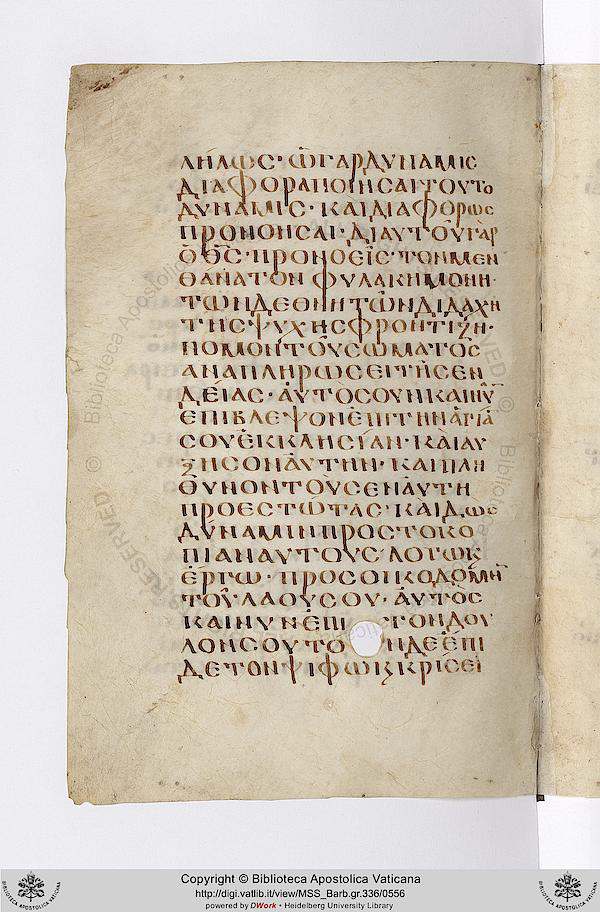 ΛΗΛΩΣ· ὩΓΑΡΔΥΝΑΜΙΣ
ΔΙΑΦΟΡΑΠΟΙΗΣΑΙΤΟΥΤΟ
ΔΥΝΑΜΙΣ· ΚΑΙΔΙΑΦΟΡΩΣ
ΠΡΟΝΟΗΣΑΙ· ΔΙΑΥΤΟΥΓΑΡ
ὉΘΣ· ΠΡΟΝΟΕΙΣ· ΤΩΝΜΕΝ
ΘΑΝΑΤΟΝ ΦΥΛΑΚΗΜΟΝΗ·
ΤΩΝΔΕΘΝΗΤΩΝΔΙΔΑΧΗ
ΤΗΣΨΥΧΗΣΦΡΟΝΤΙΖΗ·
ΠΟΜΟΝΤΟΥΣΩΜΑΤΟΣ
ΑΝΑΠΛΗΡΩΣΕΙΤΗΣΕΝ
ΔΕΙΑΣ· ΑΥΤΟΣΟΥΝΚΑΙΝΥ
ΕΠΙΒΛΕΨΟΝΕΠΙΤΗΝΑΓΙΑ
ΣΟΥΕΚΚΛΗΣΙΑΝ· ΚΑΙΑΥ
ΞΗΣΟΝΑΥΤΗΝ· ΚΑΙΠΛΗ
ΘΥΝΟΝΤΟΥΣΕΝΑΥΤΗ
ΠΡΟΕΣΤΩΤΑΣ· ΚΑΙΔΩΣ
ΔΥΝΑΜΙΝΠΡΟΣΤΟΚΟ
ΠΙΑΝΑΥΤΟΥΣ· ΛΟΓΩΚ
ΕΡΓΩ· ΠΡΟΣΟΙΚΟΔΟΜΗ
ΤΟΥΛΑΟΥΣΟΥ· ΑΥΤΟΣ
ΚΑΙΝΥΝΕΠΙ ΣΤΟΝΔΟΥ
ΛΟΝΣΟΥΤΟ ΝΔΕΕΠΙ
ΔΕΤΟΝΨΙΦΩΚ̣ΚΡΙΣΕΙ
Copyright © Biblioteca Apostolica Vaticana
http://digi.vatlib.it/view/MSS_Barb.gr.336/0556
powered by DWork · Heidelberg University Library